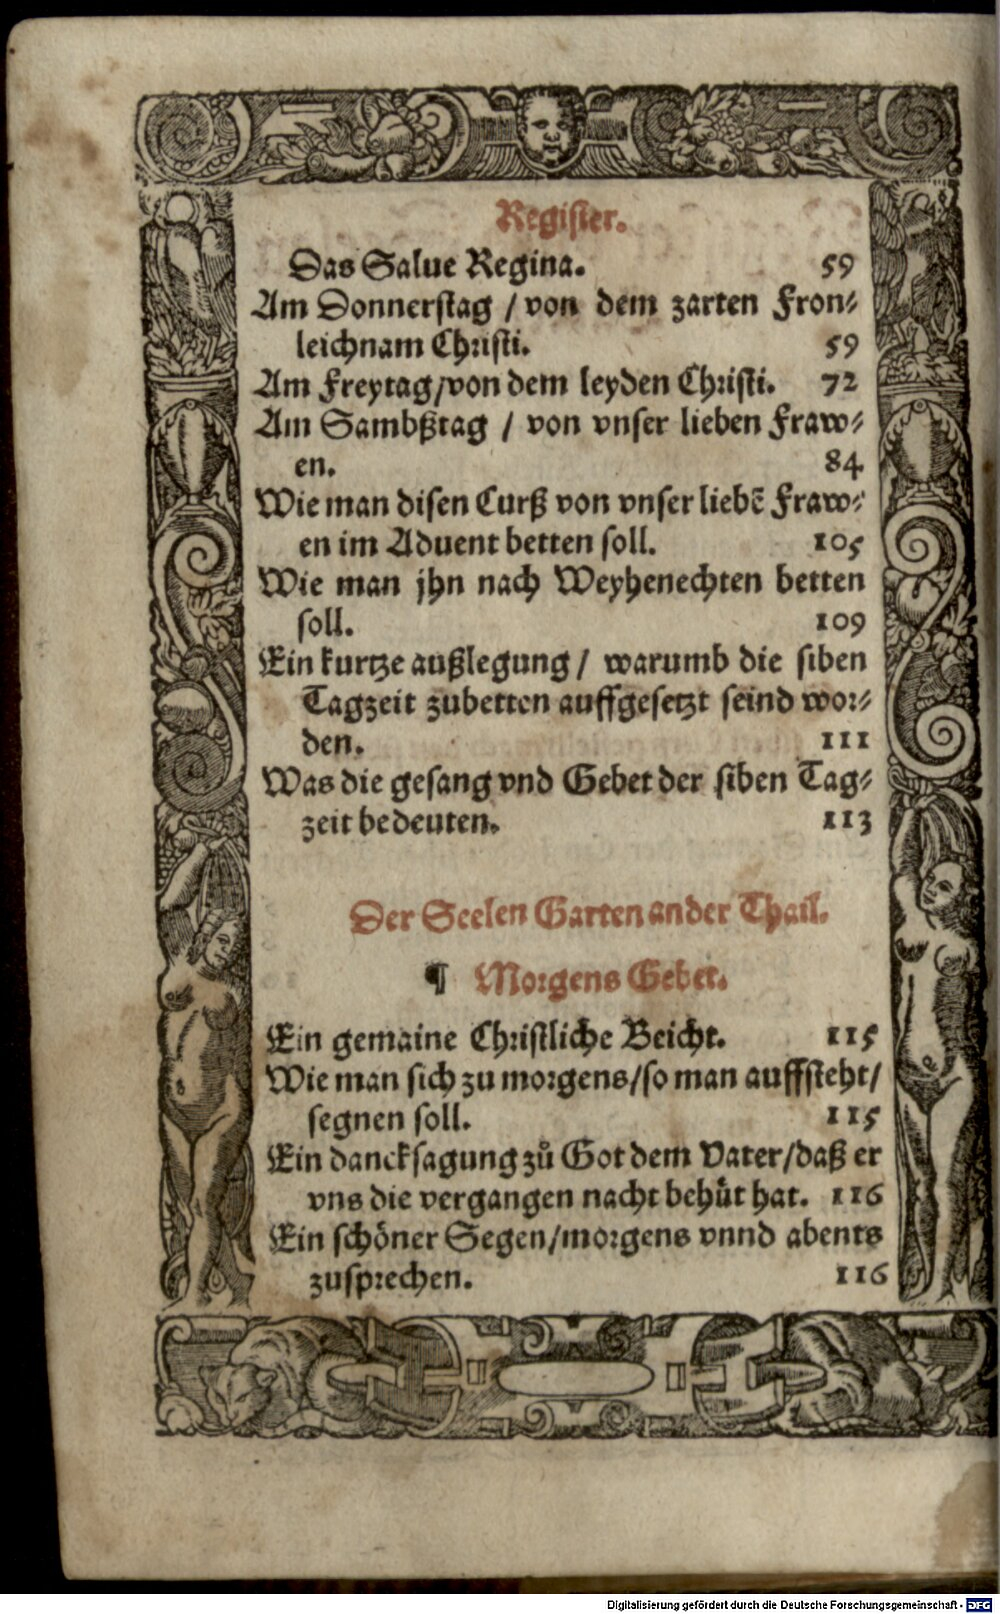 Register.
Das Salue Regina. 59
Am Donnerstag / von dem zarten Fron⸗
leichnam Christi. 59
Am Freytag/von dem leyden Christi. 72
Am Sambßtag / von vnser lieben Fraw⸗
en. 84
Wie man disen Curß von vnser liebẽ Fraw⸗
en im Aduent betten soll. 105
Wie man jhn nach Weyhenechten betten
soll. 109
Ein kurtze außlegung / warumb die siben
Tagzeit zubetten auffgesetzt seind wor⸗
den. 111
Was die gesang vnd Gebet der siben Tag⸗
zeit bedeuten. 113
Der Seelen Garten ander Thail.
¶ Morgens Gebet.
Ein gemaine Christliche Beicht. 115
Wie man sich zu morgens/so man auffsteht/
segnen soll. 115
Ein dancksagung zů Got dem Vater/daß er
vns die vergangen nacht behüt hat. 116
Ein schöner Segen/morgens vnnd abents
zusprechen. 116
Digitalisierung gefördert durch die Deutsche Forschungsgemeinschaft - DFG